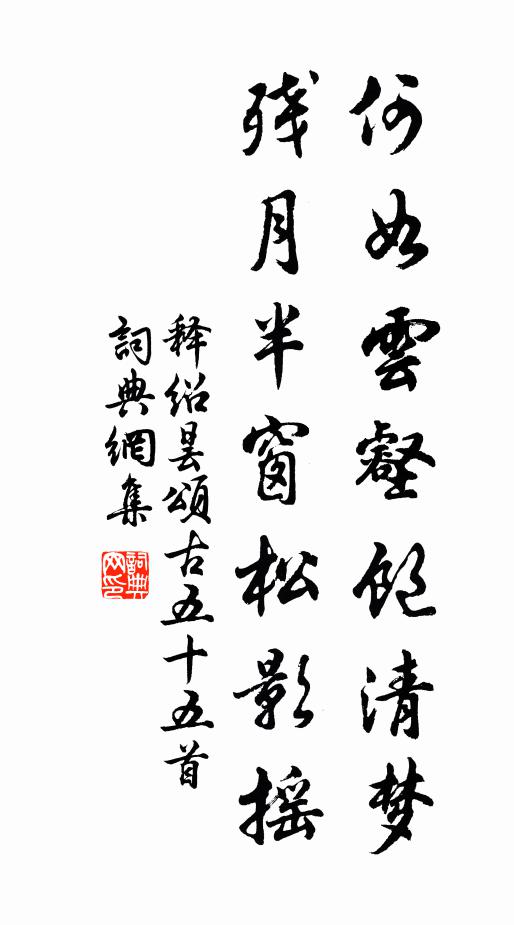 何如雲壑饱清梦
残月半窗松影摇
释绍昙頌古五十五首
詞典網集
詞典网印